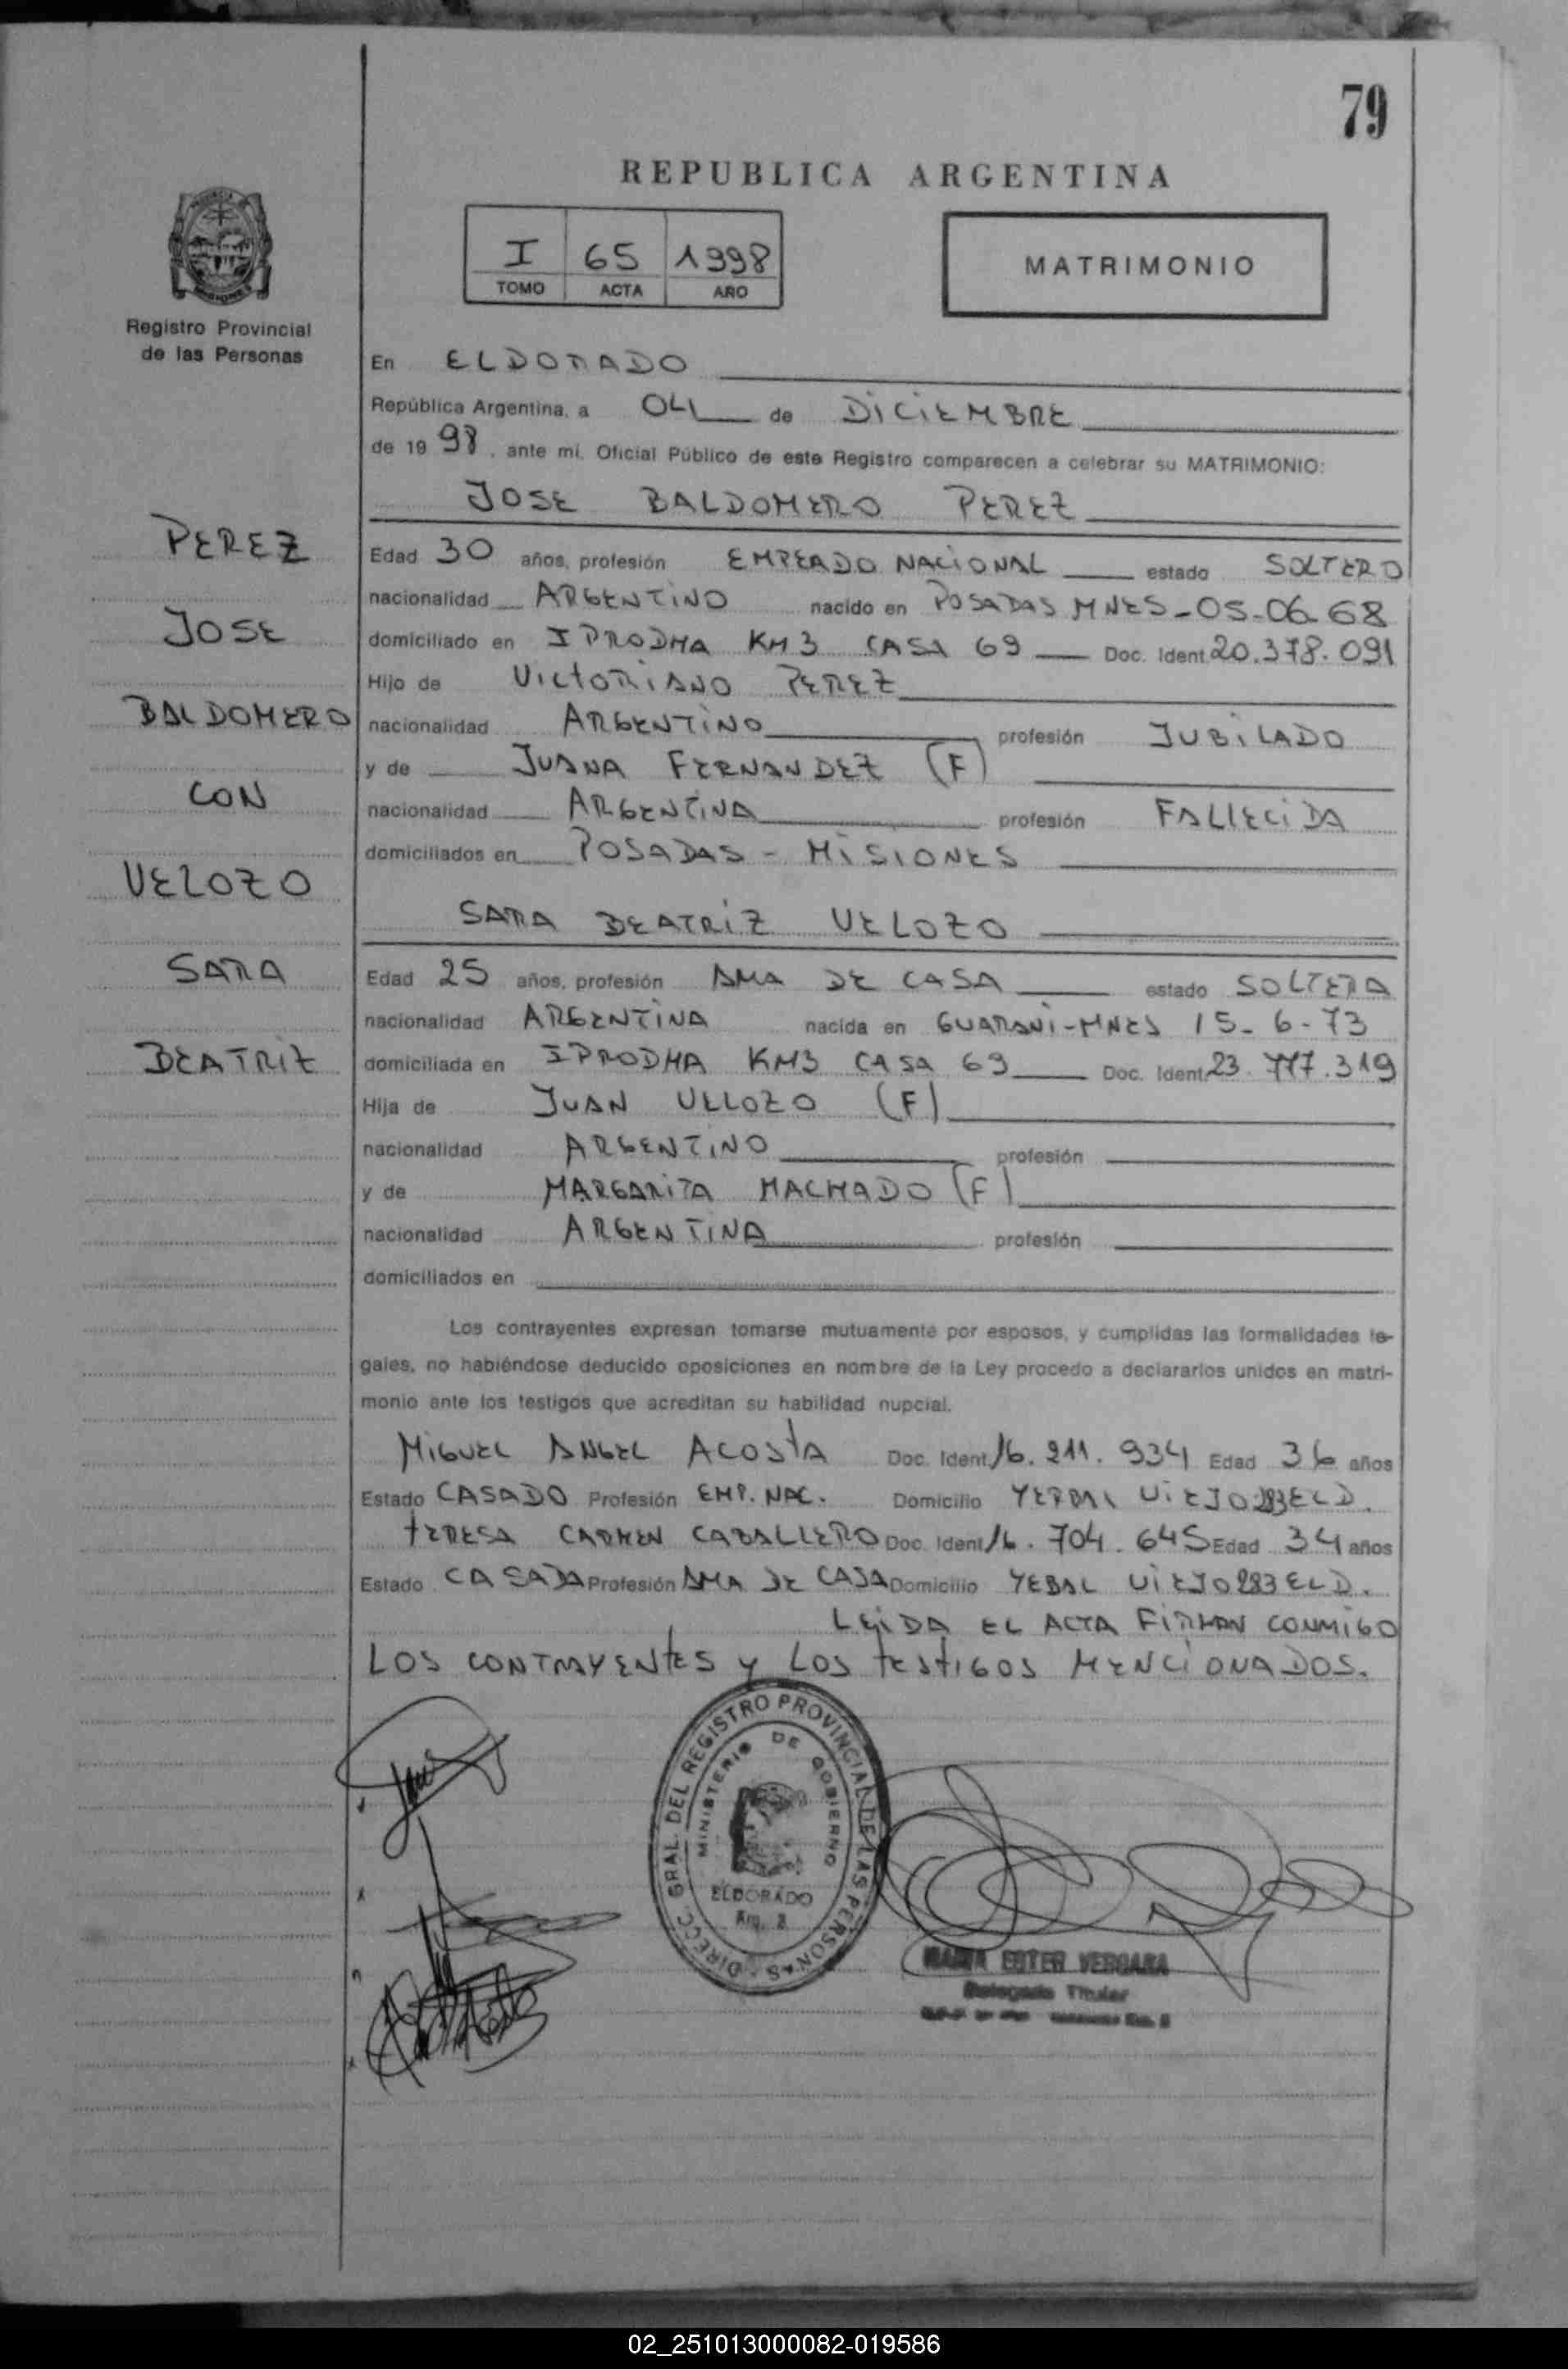 79
REPUBLICA ARGENTINA
I 65 1998
TOMO ACTA AÑO
MATRIMONIO
Registro Provincial
de las Personas
En ELDORADO
República Argentina, a 04 de DICIEMBRE
de 1998, ante mí, Oficial Público de este Registro comparecen a celebrar su MATRIMONIO:
JOSE BALDOMERO PEREZ
PEREZ
JOSE
BALDOMERO
CON
VELOZO
SARA
BEATRIZ
Edad 30 años, profesión EMPEADO NACIONAL estado SOLTERO
nacionalidad ARGENTINO nacido en POSADAS MNES-05-06-68
domiciliado en IPRODHA KM3 CASA 69 Doc. Ident. 20.378.091
Hijo de VICTORIANO PEREZ
nacionalidad ARGENTINO profesión JUBILADO
y de JUANA FERNANDEZ (F)
nacionalidad ARGENTINA profesión FALLECIDA
domiciliados en POSADAS - MISIONES
SARA BEATRIZ VELOZO
Edad 25 años, profesión AMA DE CASA estado SOLTERA
nacionalidad ARGENTINA nacida en GUARANI-MNES 15-6-73
domiciliada en IPRODHA KM3 CASA 69 Doc. Ident. 23.777.319
Hija de JUAN VELOZO (F)
nacionalidad ARGENTINO profesión
y de MARGARITA MACHADO (F)
nacionalidad ARGENTINA profesión
domiciliados en
Los contrayentes expresan tomarse mutuamente por esposos, y cumplidas las formalidades le-
gales, no habiéndose deducido oposiciones en nombre de la Ley procedo a declararlos unidos en matri-
monio ante los testigos que acreditan su habilidad nupcial.
MIGUEL ANGEL ACOSTA Doc. Ident. 16.211.934 Edad 36 años
Estado CASADO Profesión EMP. NAC. Domicilio YERBAL VIEJO 283 ELD.
TERESA CARMEN CABALLERO Doc. Ident. 16.704.645 Edad 34 años
Estado CASADA Profesión AMA DE CASA Domicilio YEBAL VIEJO 283 ELD.
LEIDA EL ACTA FIRMAN CONMIGO
LOS CONTRAYENTES Y LOS TESTIGOS MENCIONADOS.
DIRECC. GRAL. DEL REGISTRO PROVINCIAL DE LAS PERSONAS
MINISTERIO DE GOBIERNO
ELDORADO
MARIA ESTER VERGARA
Delegada Titular
02_251013000082-019586